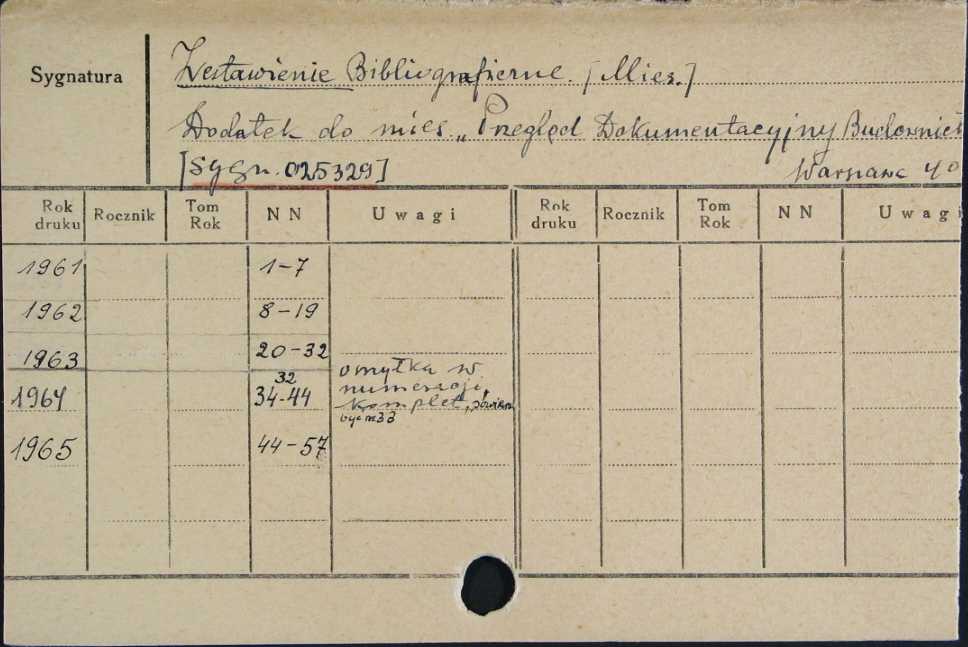 Sygnatura
Zestawienie Bibliograficzne. [Mies.]
Dodatek do mies. „Przegląd Dokumentacyjny Budownict
[Sygn. 025329]
Warszawa 4°
Rok druku Rocznik Tom Rok NN Uwagi Rok druku Rocznik Tom Rok NN Uwagi
1961 1-7
1962 8-19
1963 20-32
32
1964 34-44 omyłka w
numeracji,
komplet, powinien
być nr 33
1965 44-57